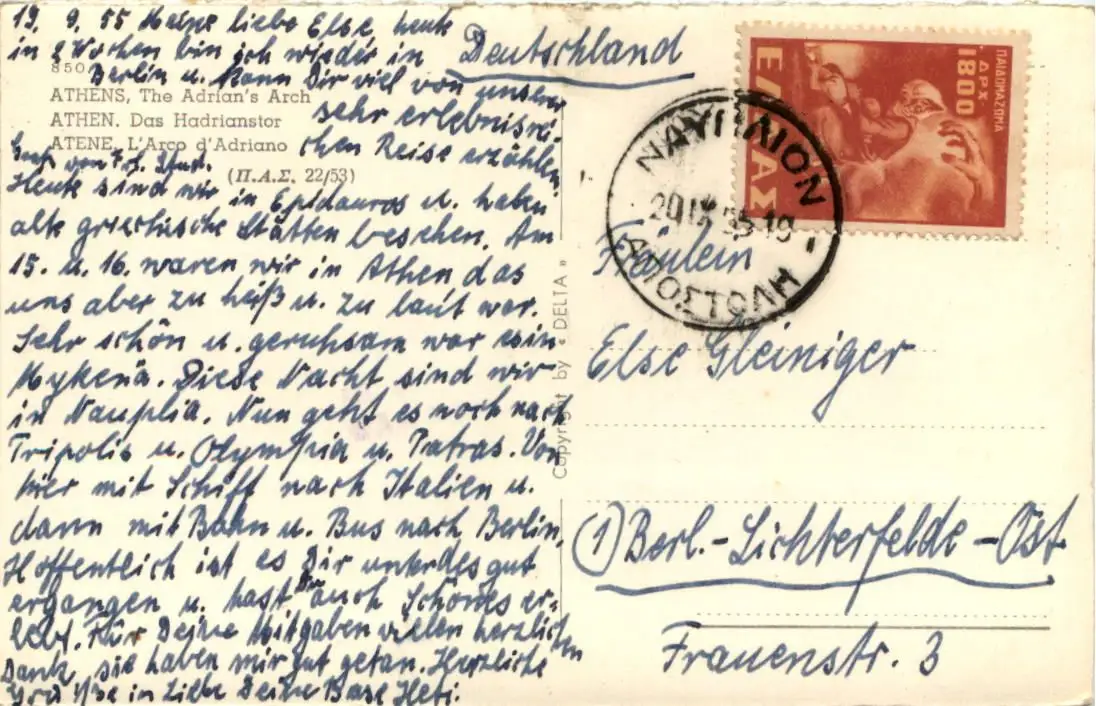 19. 9. 55 Meine liebe Else, heute
in 2 Wochen bin ich wieder in
Berlin u. kann Dir viel von unserer
sehr erlebnisrei-
chen Reise erzählen.
850
ATHENS, The Adrian's Arch
ATHEN. Das Hadrianstor
ATENE, L'Arco d'Adriano
(Π.Α.Σ. 22/53)
Gruß von Frl.
Heute sind wir in Epidauros u. haben
alte griechische Stätten besehen. Am
15. u. 16. waren wir in Athen das
uns aber zu heiß u. zu laut war.
Sehr schön u. geruhsam war es in
Mykenä. Diese Nacht sind wir
in Nauplia. Nun geht es noch nach
Tripolis u. Olympia u. Patras. Von
hier mit Schiff nach Italien u.
dann mit Bahn u. Bus nach Berlin.
Hoffentlich ist es Dir unterdes gut
ergangen u. hast Du auch Schönes er-
lebt. Für Deine Mitgaben vielen herzlichen
Dank, sie haben mir gut getan. Herzliche
Grüße in Liebe Deine Base Heti.
Copyright by « DELTA »
Deutschland
ΕΛΛΑΣ
ΠΑΙΔΟΜΑΖΩΜΑ
ΔΡΧ. 1800
ΝΑΥΠΛΙΟΝ
20 IX 55-19
ΑΠΟΣΤΟΛΗ
Fräulein
Else Gleiniger
(1) Berl.-Lichterfelde-Ost
Frauenstr. 3